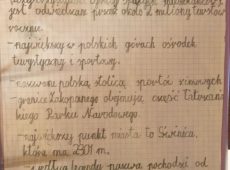 jest odwiedzane przez około 2 miliony turystów
rocznie.
- największy w polskich górach ośrodek
turystyczny i sportowy.
- nazywane polską stolicą sportów zimowych
- granice Zakopanego obejmują część Tatrzańs
kiego Parku Narodowego.
- największy punkt miasta to Świnica,
która ma 2301 m.
- według legendy nazwa pochodzi od